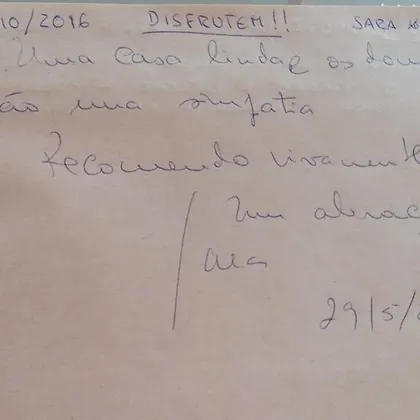 10/2016 DISFRUTEM!! SARA
Uma casa linda e os don
ão uma simpatia
Recomendo vivamente
Um abraç
Ana
29/5/